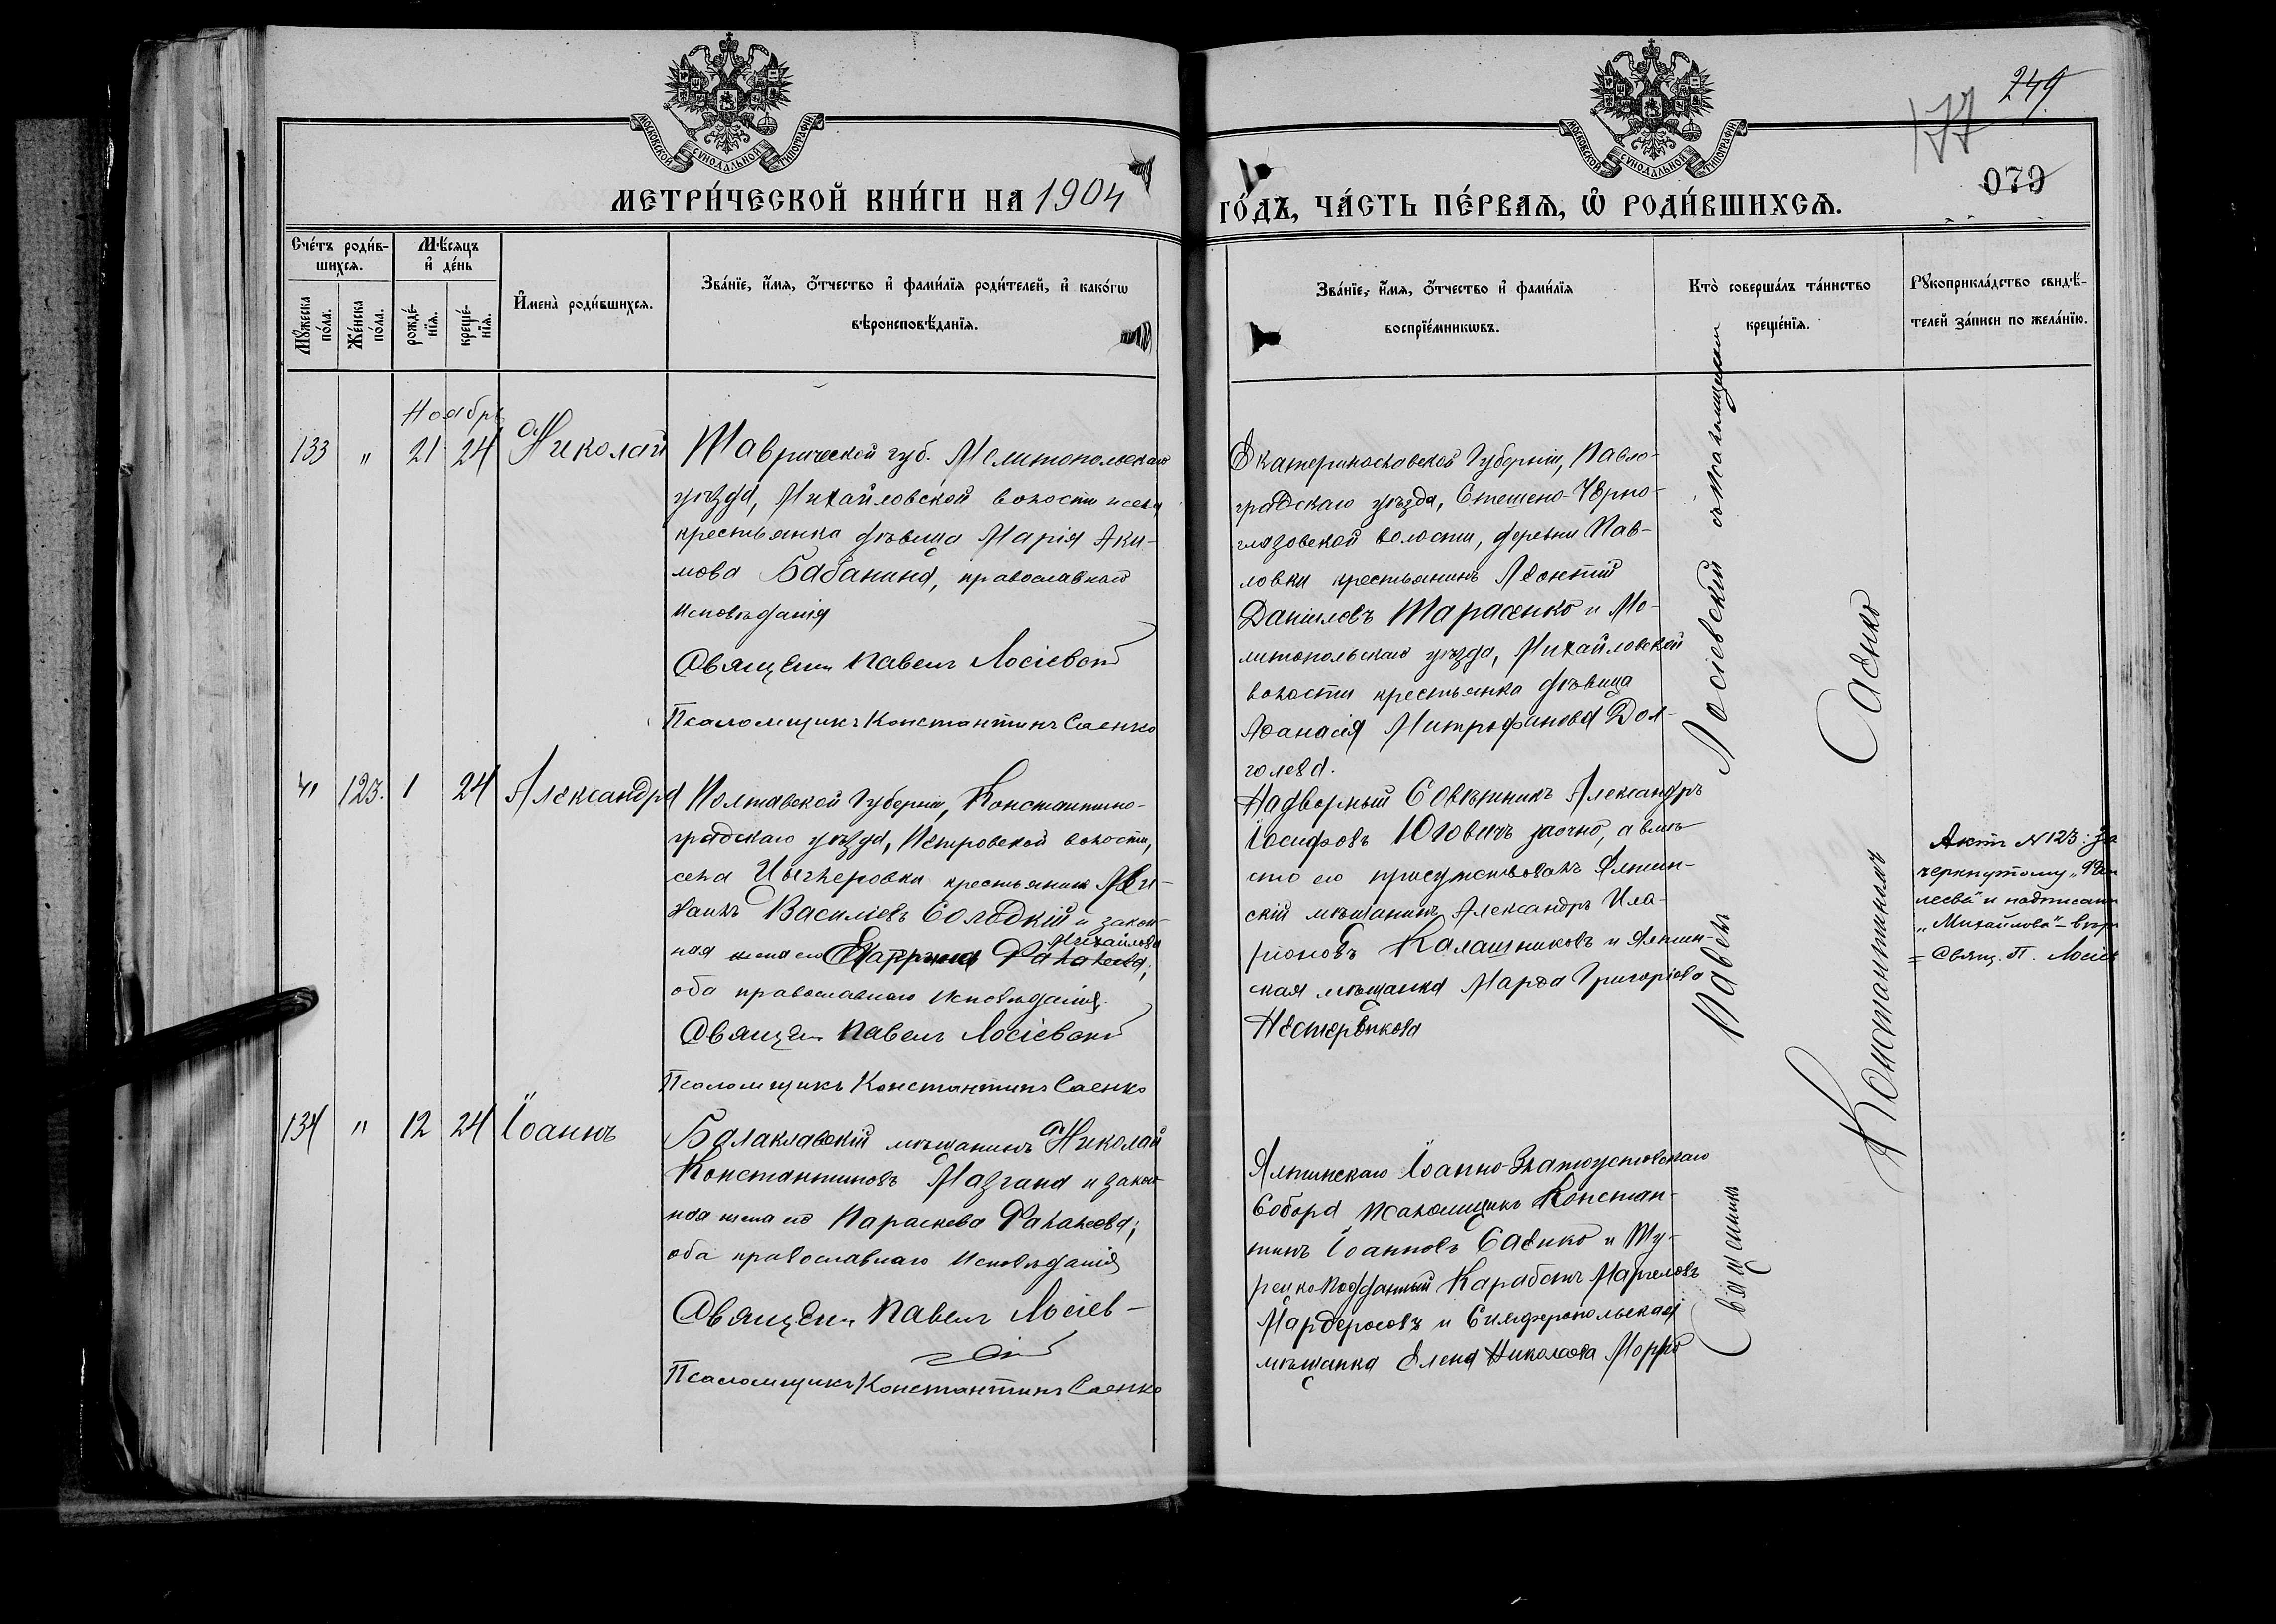 249
177
079
МОСКОВСКОЙ СѴНОДАЛЬНОЙ ТИПОГРАФІИ
МОСКОВСКОЙ СѴНОДАЛЬНОЙ ТИПОГРАФІИ
МЕТРИ́ЧЕСКОЙ КНИ́ГИ НА 1904
ГО́ДЪ, ЧА́СТЬ ПЕ́РВАѦ, Ѡ҆ РОДИ́ВШИХСѦ.
Сче́тъ роди́в-
шихсѧ.
Мꙋ́жеска по́ла.
Же́нска по́ла.
Мѣ́сѧцъ
и҆ де́нь
рожде́-
нїѧ.
креще́-
нїѧ.
И҆мена̀ роди́вшихсѧ.
Зва́нїе, и҆́мѧ, о҆́тчество и҆ фамѝлїѧ роди́телей, и҆ како́гѡ
вѣроисповѣ́данїѧ.
Зва́нїе, и҆́мѧ, о҆́тчество и҆ фами́лїѧ
воспрїе́мникѡвъ.
Кто̀ соверша́лъ та́инство
креще́нїѧ.
Рꙋкоприкла́дство свидѣ́-
телей за́писи по жела́нїю.
Ноябрь
133 " 21 24 Николай
Таврической губ. Мелитопольскаго
уѣзда, Михайловской волости и села
крестьянка дѣвица Марія Аки-
мова Бабанина, православнаго
исповѣданія
Священ. Павелъ Лосіевскій
Псаломщикъ Константинъ Саенко
Екатеринославской Губерніи, Павло-
градскаго уѣзда, Стешено-Черно-
глазовской волости, деревни Пав-
ловки крестьянинъ Леонтій
Даніиловъ Тарасенко и Ме-
литопольскаго уѣзда, Михайловской
волости крестьянка дѣвица
Аѳанасія Митрофанова Дол-
голева.
" 123. 1 24 Александра
Полтавской Губерніи, Константино-
градскаго уѣзда, Петровской волости,
села крестьянинъ
Василіевъ Солодкій и закон-
ная жена его Екатерина Михайлова
оба православнаго исповѣданія.
Священ. Павелъ Лосіевскій
Псаломщикъ Константинъ Саенко
Надворный Совѣтникъ Александръ
Іосифовъ Юговичъ заочно, а вмѣ-
сто его присутствовалъ Ялтин-
скій мѣщанинъ Александръ Ила-
ріоновъ Калашниковъ и Ялтин-
ская мѣщанка Марѳа Григоріева
Нестеренкова
Актъ N 123: за
черкнутому
и надписан
"Михайлова" - вѣр
= Свящ. П. Лосіев
134 " 12 24 Іоаннъ
Балаклавскій мѣщанинъ Николай
Константиновъ Мазгана и закон-
ная жена его Параскева Фалалеева;
оба православнаго исповѣданія
Священ. Павелъ Лосіев-
скій
Псаломщикъ Константинъ Саенко
Ялтинскаго Іоанно-Златоустовскаго
Собора псаломщикъ Констан-
тинъ Іоанновъ Саенко и Ту-
рецкоподданный Карабетъ
Мардеросовъ и Симферопольская
мѣщанка Елена Николаева
Священникъ Павелъ Лосіевскій съ псаломщикомъ
Константиномъ Саенко